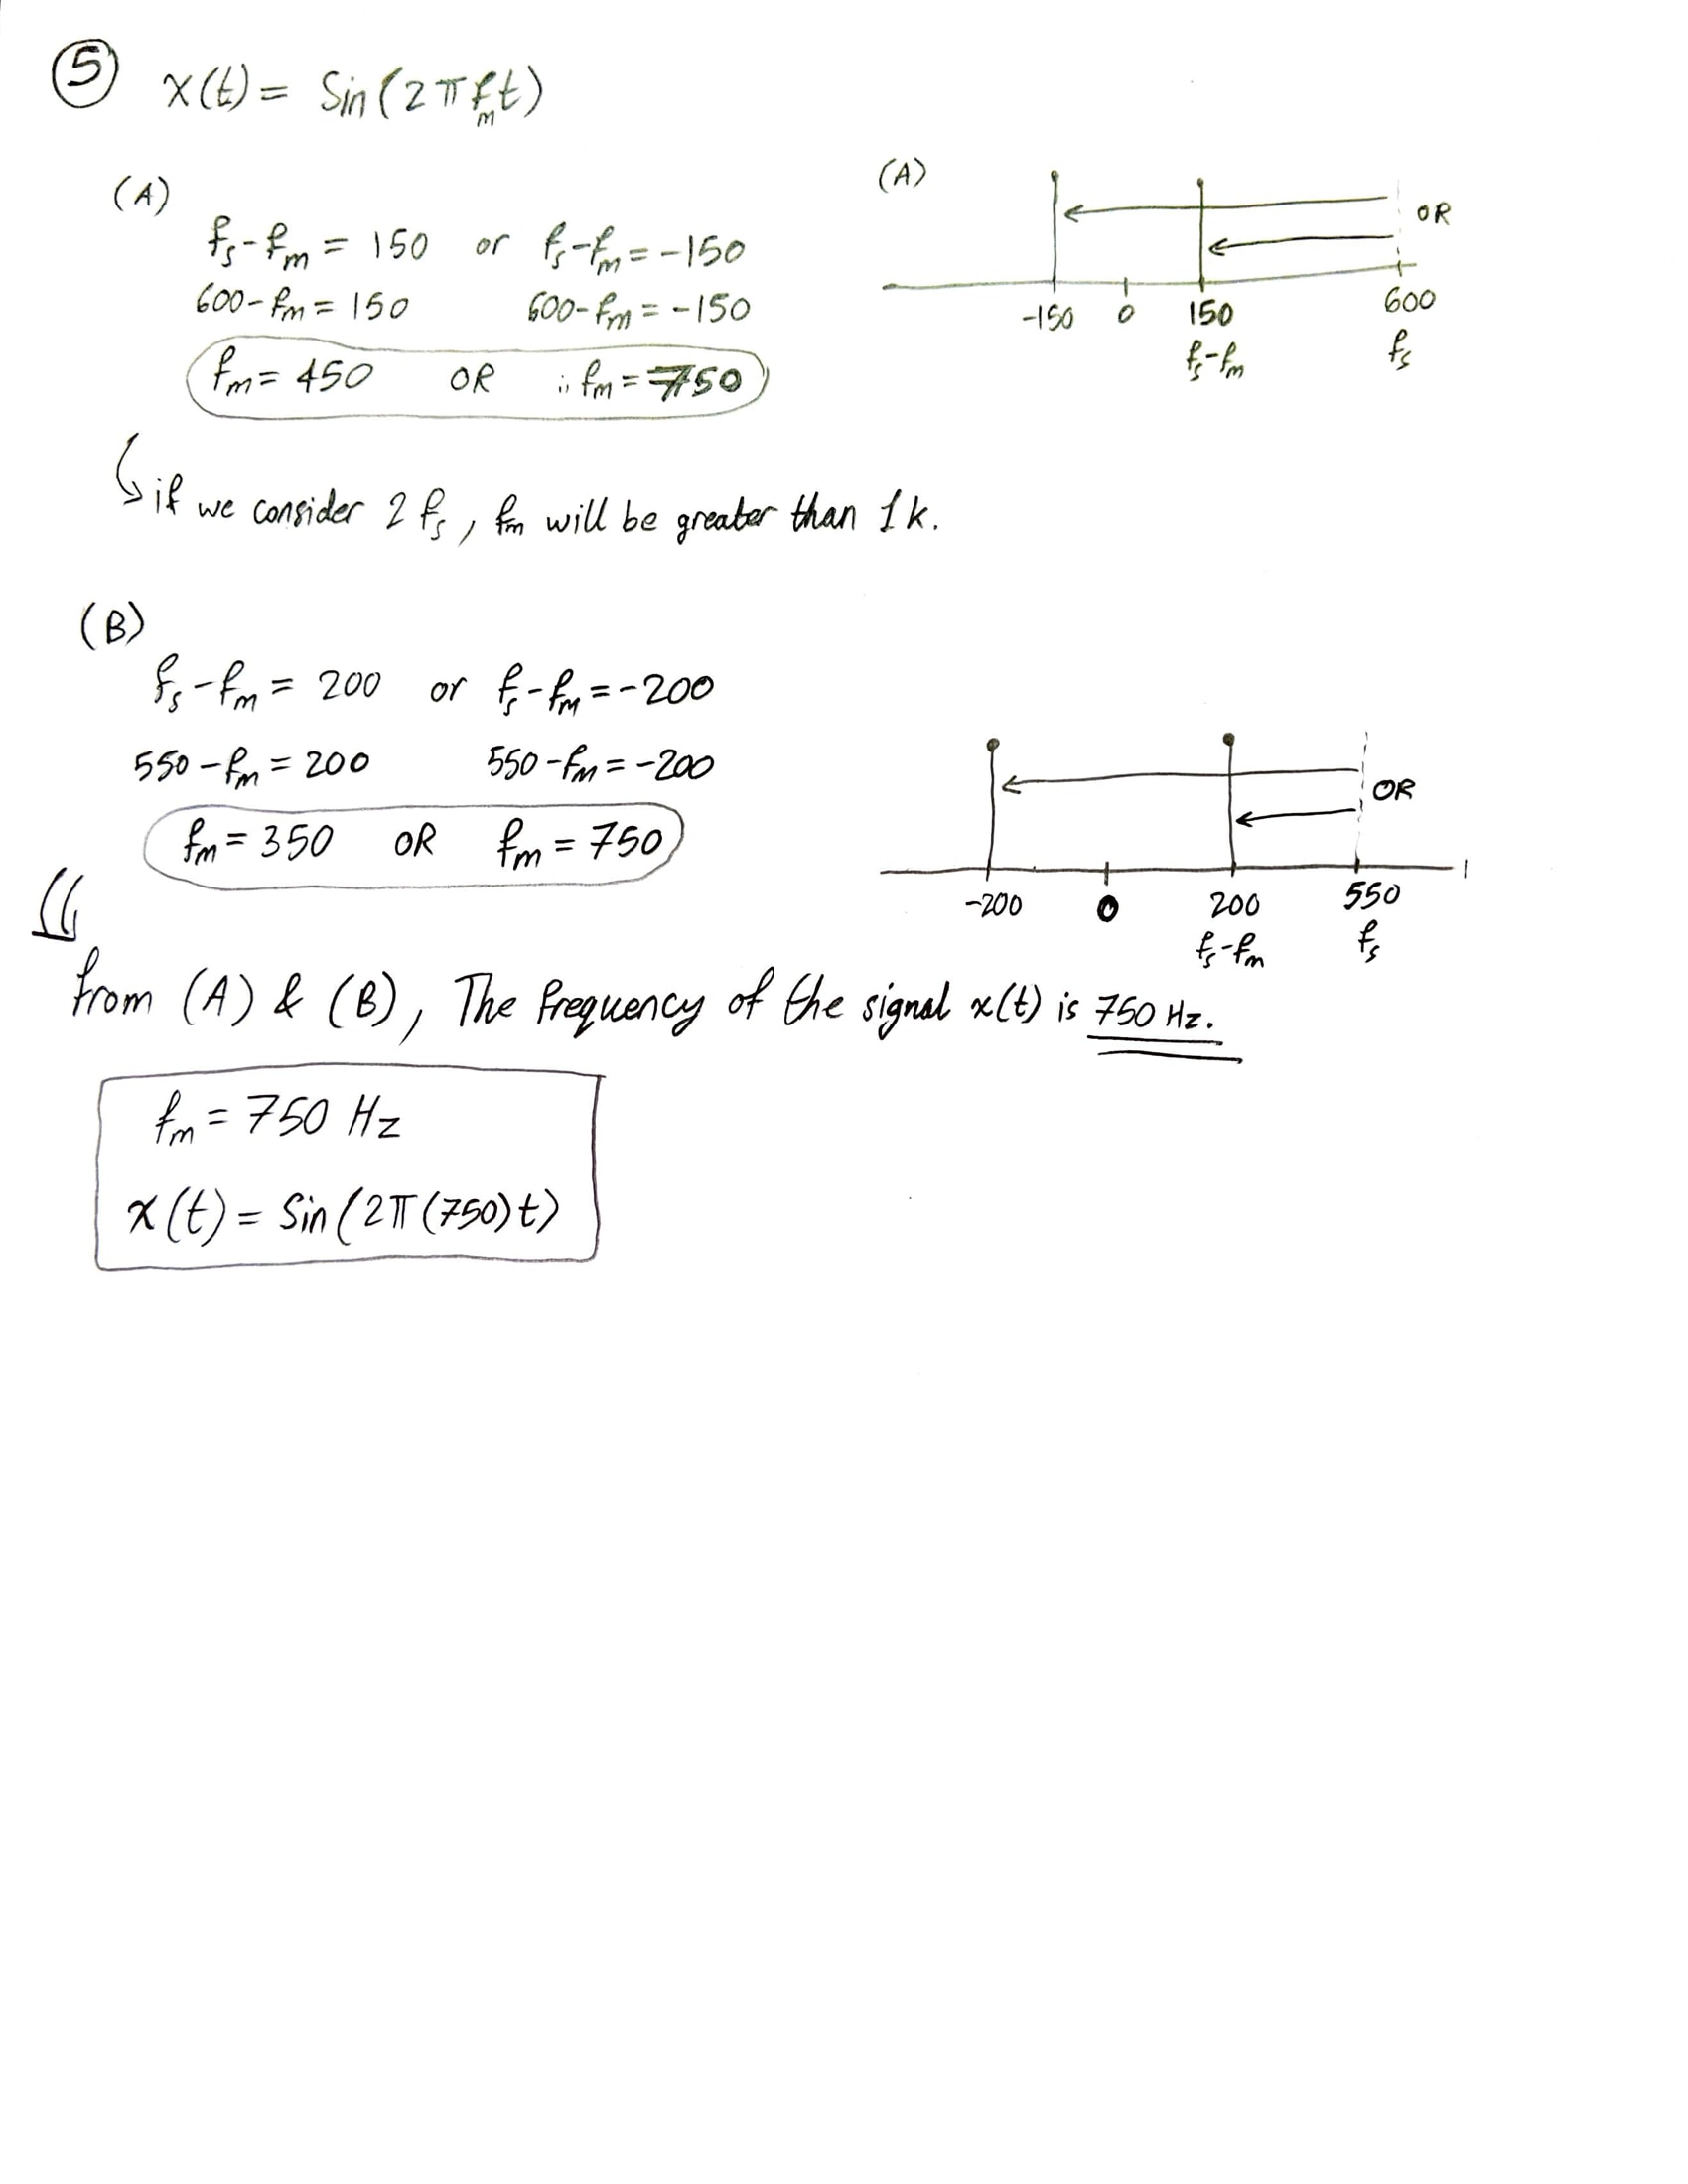 5 x(t) = Sin(2πfₘt)
(A)
fₛ-fₘ = 150 or fₛ-fₘ = -150
600-fₘ = 150 600-fₘ = -150
fₘ = 450 OR ∴ fₘ = 750
if we consider 2fₛ, fₘ will be greater than 1k.
(A)
OR
-150 0 150 600
fₛ-fₘ fₛ
(B)
fₛ-fₘ = 200 or fₛ-fₘ = -200
550-fₘ = 200 550-fₘ = -200
fₘ = 350 OR fₘ = 750
OR
-200 0 200 550
fₛ-fₘ fₛ
from (A) & (B), The frequency of the signal x(t) is 750 Hz.
fₘ = 750 Hz
x(t) = Sin(2π(750)t)